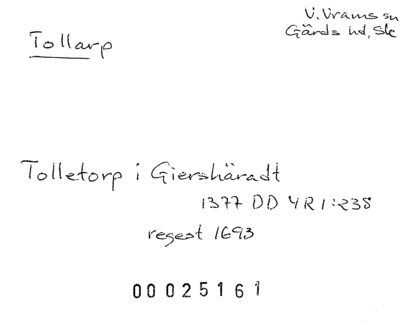 Tollarp
V. Vrams sn
Gärds hd, Sk
Tolletorp i Giershäradt
1377 DD 4R 1:238
regest 1693
00025161